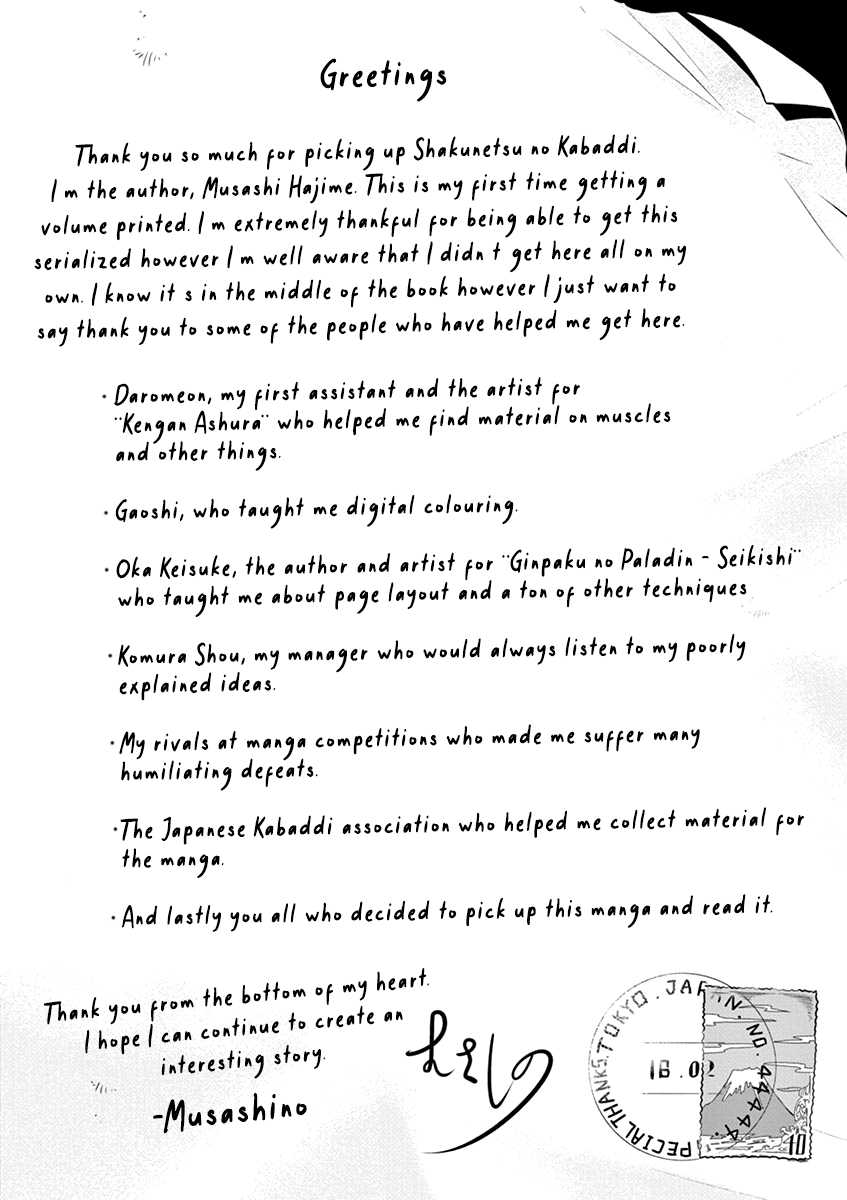 Greetings
Thank you so much for picking up Shakunetsu no Kabaddi.
I m the author, Musashi Hajime. This is my first time getting a
volume printed. I m extremely thankful for being able to get this
serialized however I m well aware that I didn t get here all on my
own. I know it s in the middle of the book however I just want to
say thank you to some of the people who have helped me get here.
· Daromeon, my first assistant and the artist for
¨Kengan Ashura¨ who helped me find material on muscles
and other things.
· Gaoshi, who taught me digital colouring.
· Oka Keisuke, the author and artist for ¨Ginpaku no Paladin - Seikishi¨
who taught me about page layout and a ton of other techniques
· Komura Shou, my manager who would always listen to my poorly
explained ideas.
· My rivals at manga competitions who made me suffer many
humiliating defeats.
· The Japanese Kabaddi association who helped me collect material for
the manga.
· And lastly you all who decided to pick up this manga and read it.
Thank you from the bottom of my heart.
I hope I can continue to create an
interesting story.
-Musashino
SPECIAL THANKS. TOKYO . JAPAN. NO. 44444.
16 . 02
10